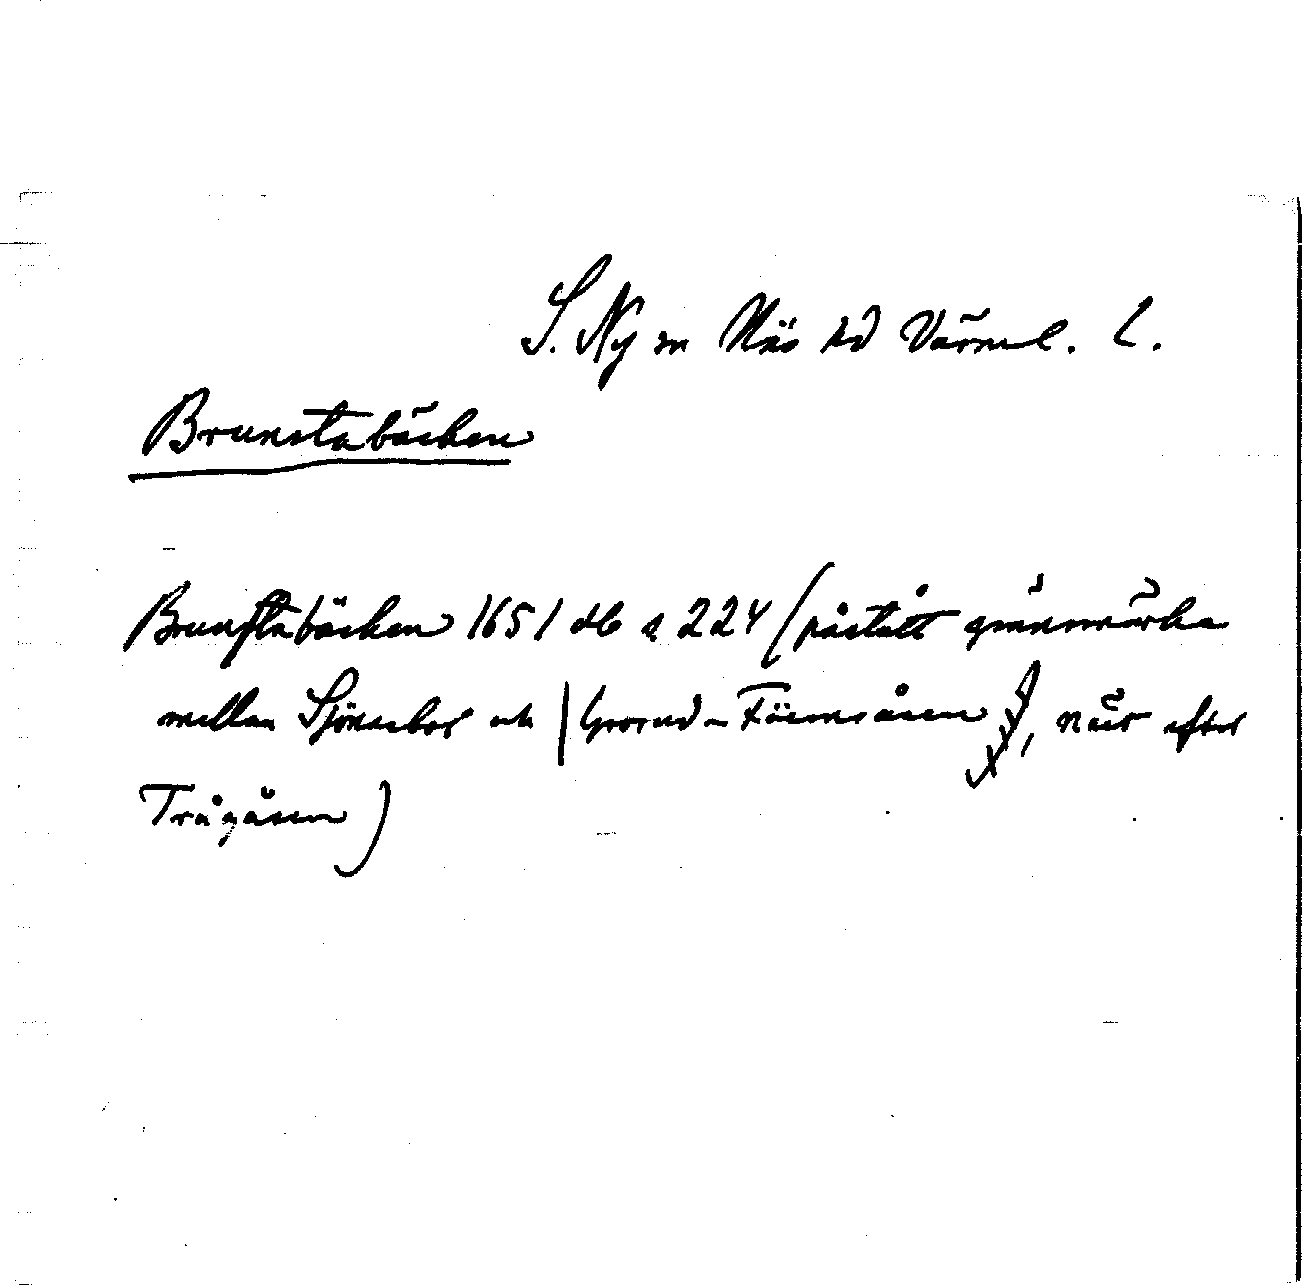 S. Ny sn Näs hd Värml. l.
Brunstabäcken
Brunstabäcken 1651 db s 224 (påstått gränsmärke
mellan Sjönsebol och | Grorud - Fäernsåsen, näst efter
Trågåsen)